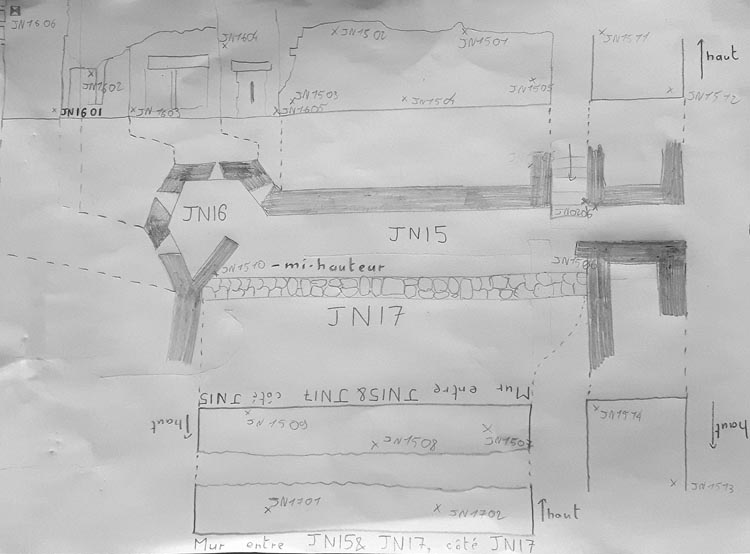 JN1606
JN1604
JN1502
JN1501
JN1511
haut
JN1602
JN1503
JN1504
JN1505
JN1512
JN1601
JN1603
JN1605
JN16
JN15
JN1510 - mi-hauteur
JN1506
JN17
Mur entre JN15&JN17 côté JN15
haut
JN1509
JN1508
JN1507
JN1514
haut
JN1513
JN1701
JN1702
haut
Mur entre JN15& JN17, côté JN17